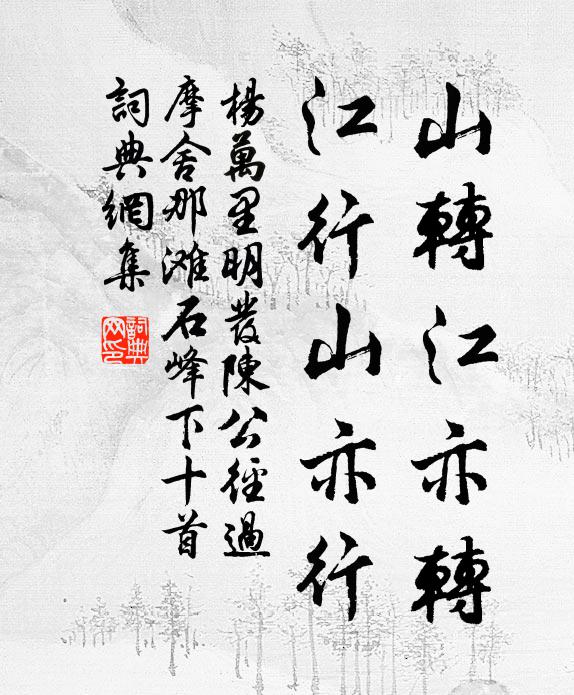 山轉江亦轉
江行山亦行
楊萬里明發陳公徑過
摩舍那滩石峰下十首
詞典網集
詞典网印